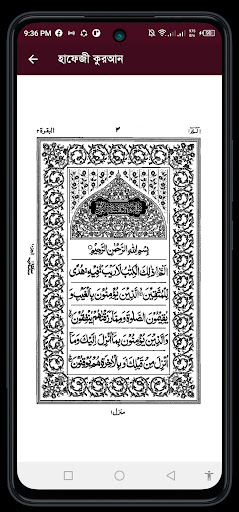 9:36 PM
হাফেজী কুরআন
البقرة ٢
٣
الٓمّٓ ١
بِسْمِ اللهِ الرَّحْمٰنِ الرَّحِيْمِ
الٓمّٓ ذٰلِكَ الْكِتٰبُ لَا رَيْبَ فِيْهِ هُدًى
لِّلْمُتَّقِيْنَ الَّذِيْنَ يُؤْمِنُوْنَ بِالْغَيْبِ وَ
يُقِيْمُوْنَ الصَّلٰوةَ وَمِمَّا رَزَقْنٰهُمْ يُنْفِقُوْنَ
وَالَّذِيْنَ يُؤْمِنُوْنَ بِمَآ اُنْزِلَ اِلَيْكَ وَمَآ
اُنْزِلَ مِنْ قَبْلِكَ وَبِالْاٰخِرَةِ هُمْ يُوْقِنُوْنَ
منزل ١